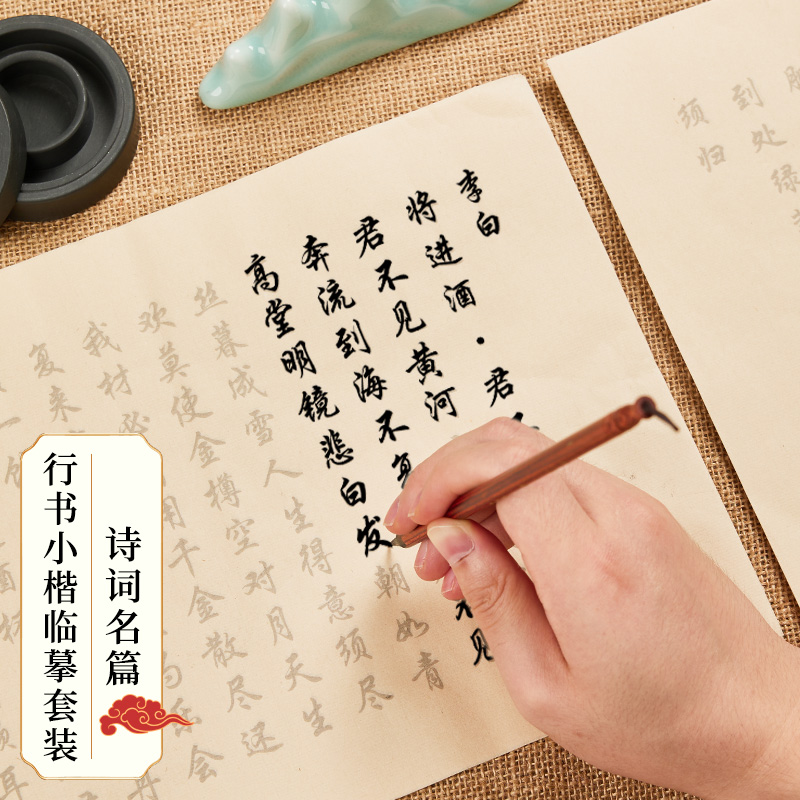 李白
将进酒·君不
君不见黄河
奔流到海不复
不见
高堂明镜悲白发朝如青
丝暮成雪人生得意须尽
欢莫使金樽空对月天生
我材必用千金散尽还
复来
为乐会
到处绿
须归
诗词名篇
行书小楷临摹套装